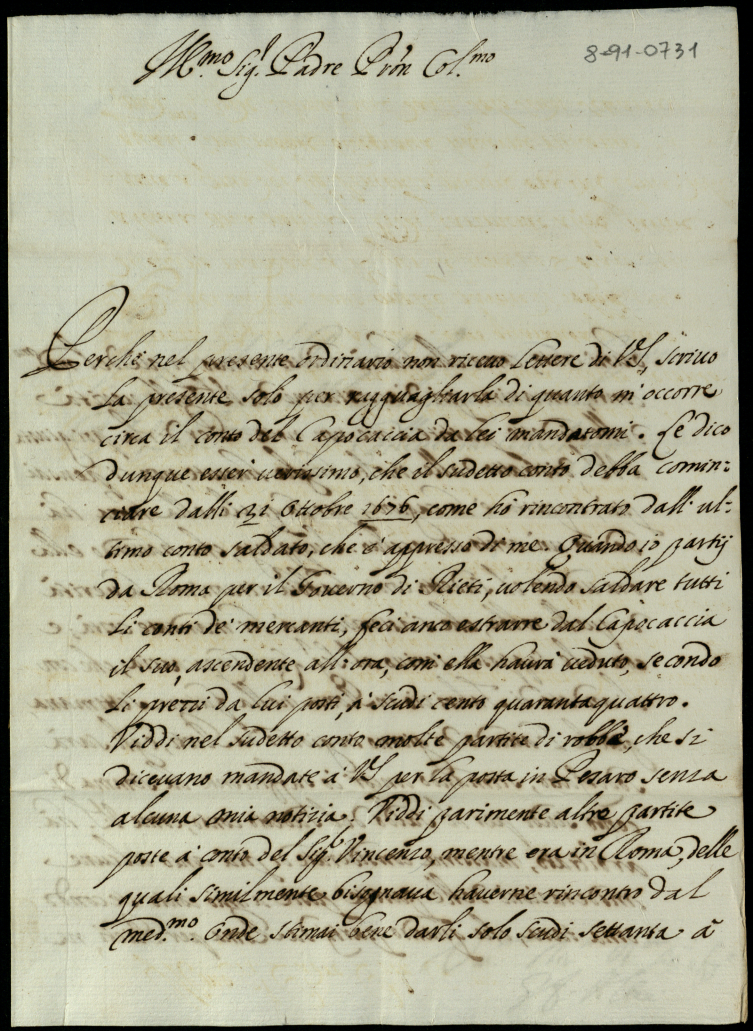 8-91-0731
Ill.mo Sig.r Padre Pròn Col.mo
Perche nel presente ordinario non riceuo lettere di VS, scriuo
la presente solo per ragguagliarla di quanto m'occorre
circa il conto del Capocaccia da lei mandatomi. Le dico
dunque esser uerissimo, che il sudetto conto debba comin=
ciare dalli 21 Ottobre 1676, come hò rincontrato dall'ul=
timo conto saldato, che è appresso di me. Quando io partij
da Roma per il Gouerno di Rieti, uolendo saldare tutti
li conti de' mercanti, feci anco estrarre dal Capocaccia
il suo, ascendente all'ora, com' ella haurà ueduto, secondo
li prezzi da lui posti, à scudi cento quarantaquattro.
Viddi nel sudetto conto molte partite di robbe, che si
diceuano mandate à VS per la posta in Pesaro senza
alcuna mia notizia. Viddi parimente altre partite
poste à conto del Sig.r Vincenzo, mentre era in Roma, delle
quali similmente bisognaua hauerne rincontro dal
med.mo. Onde stimai bene darli solo scudi settanta à